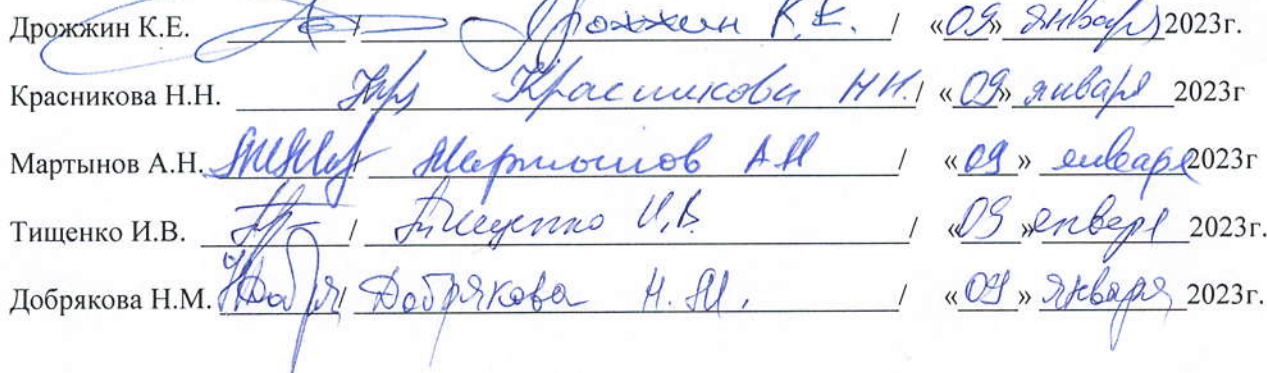 Дрожжин К.Е. / Дрожжин К.Е. / «09» января 2023г.
Красникова Н.Н. Красникова Н.Н. / «09» января 2023г
Мартынов А.Н. / Мартынов А.Н / «09» января 2023г
Тищенко И.В. / Тищенко И.В. / «09» января 2023г.
Добрякова Н.М. / Добрякова Н.М. / «09» января 2023г.